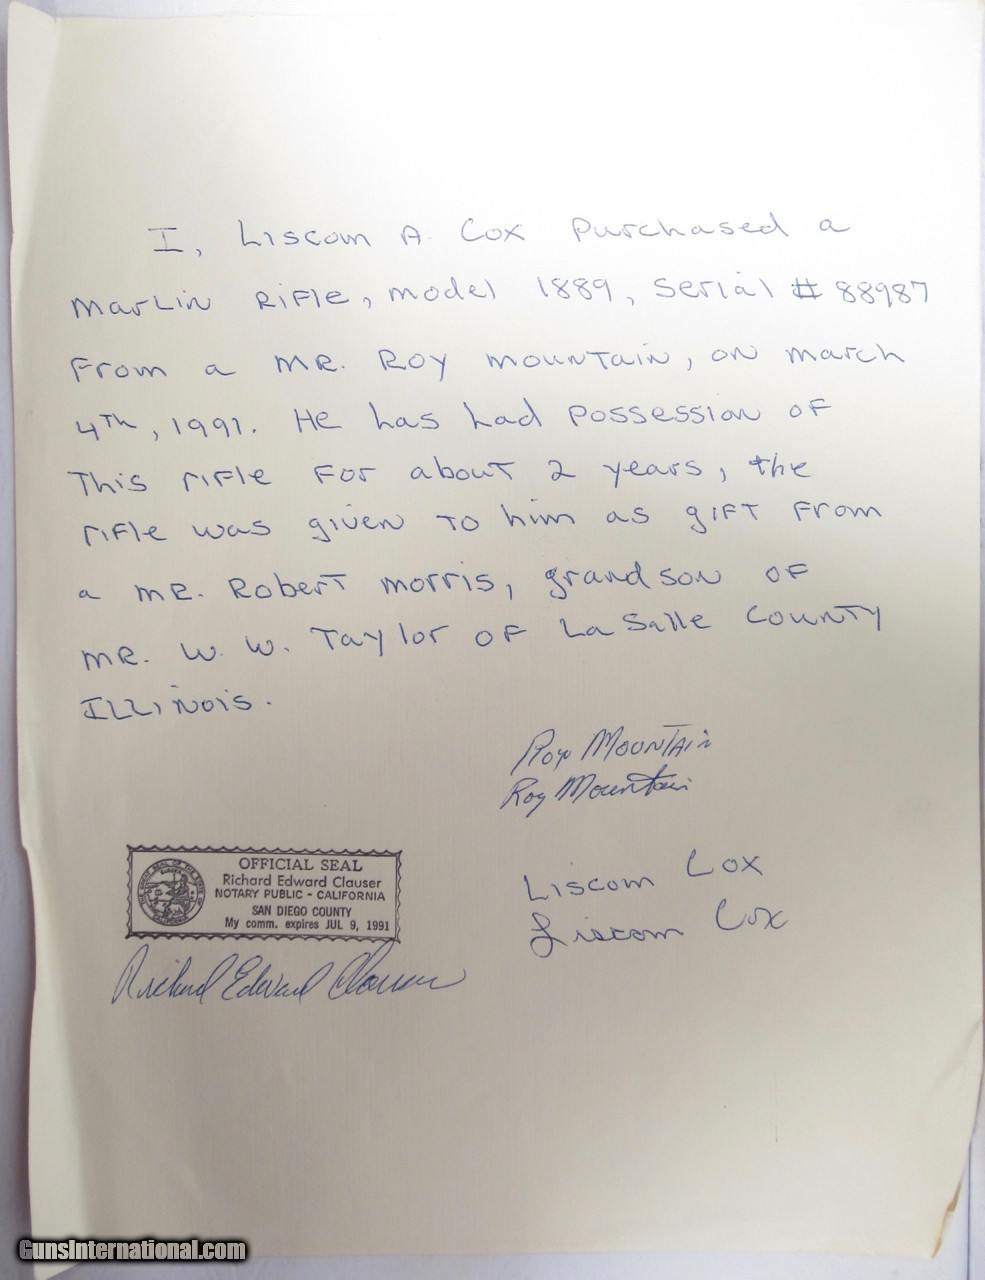 I, Liscom A. Cox Purchased a
Marlin Rifle, Model 1889, Serial # 88987
From a MR. Roy Mountain, on March
4th, 1991. He has had Possession of
This rifle for about 2 years, the
rifle was given to him as gift from
a MR. Robert Morris, grandson of
MR. W. W. Taylor of LaSalle County
ILLinois.
Roy Mountain
Roy Mountain
Liscom Cox
Liscom Cox
OFFICIAL SEAL
Richard Edward Clauser
NOTARY PUBLIC - CALIFORNIA
SAN DIEGO COUNTY
My comm. expires JUL 9, 1991
Richard Edward Clauser
GunsInternational.com